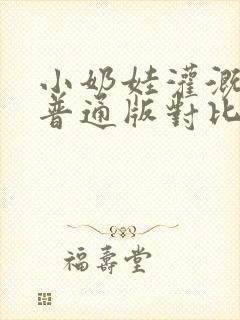 小奶娃灌溉
普通版對比
福壽堂